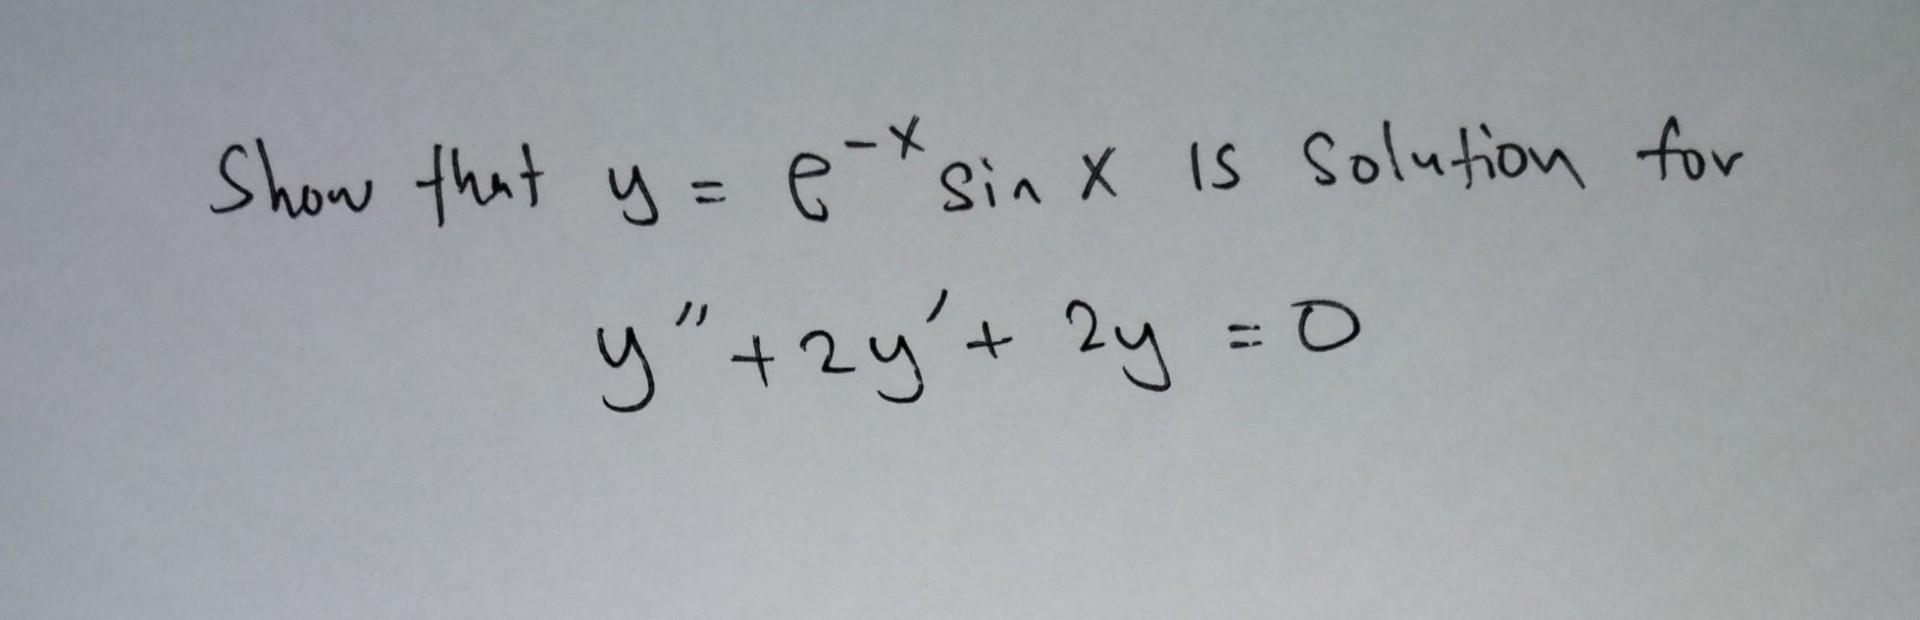 Show that y = e^{-x} sin x is solution for
y'' + 2y' + 2y = 0